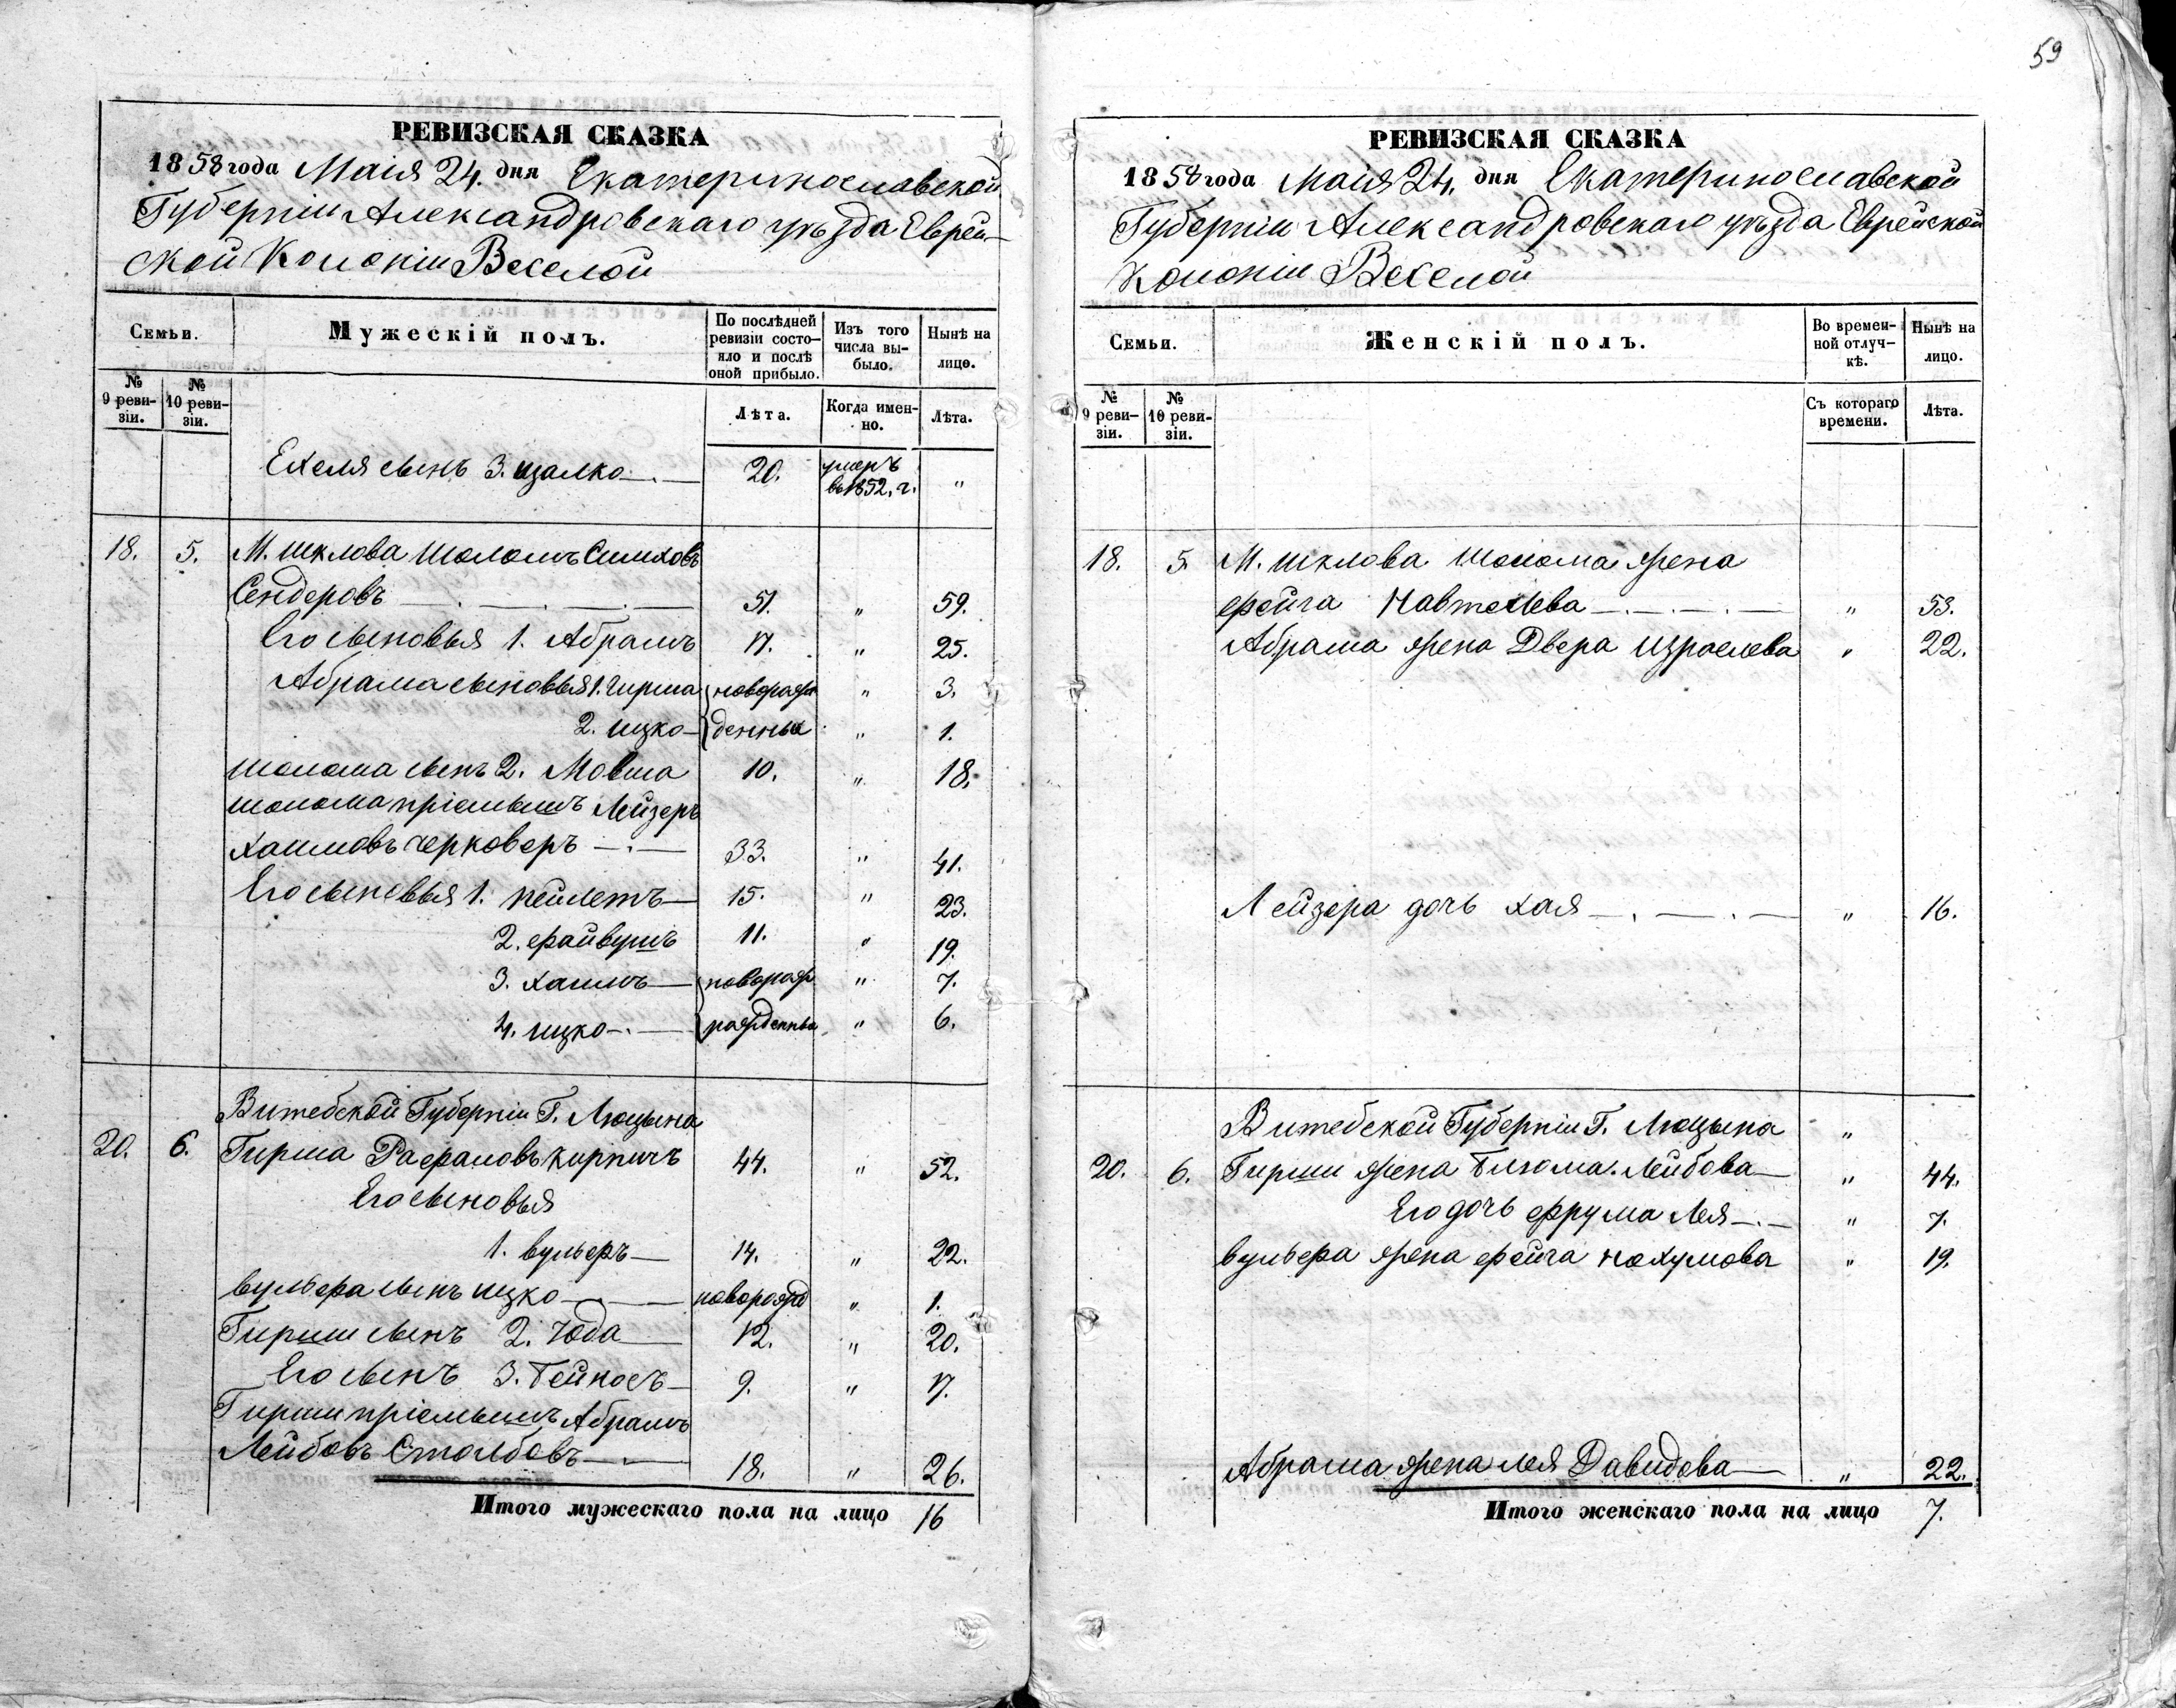 59
РЕВИЗСКАЯ СКАЗКА
1858 года Маія 24. дня Екатеринославской
Губерніи Александровскаго уѣзда Еврей-
ской Колоніи Веселой
Семьи.
Мужескій полъ.
По послѣдней ревизіи состо-яло и послѣ оной прибыло.
Изъ того числа вы-было.
Нынѣ на лицо.
№ 9 реви-зіи.
№ 10 реви-зіи.
Лѣта.
Когда имен-но.
Лѣта.
Ехеля сынъ 3. Цалко 20. умеръ въ 1852. г. "
18. 5. М. Шклова Шоломъ Симховъ
Сендеровъ 51. " 59.
Его сыновья 1. Абрамъ 17. " 25.
Абрама сыновья 1. Гирша новорож " 3.
2. Ицко денные " 1.
Шолома сынъ 2. Мовша 10. " 18.
Шолома пріемышъ Лейзеръ
Хаимовъ Черковеръ 33. " 41.
Его сыновья 1. Пейлетъ 15. " 23.
2. Файвушъ 11. " 19.
3. Хаимъ новорож " 7.
4. Ицко рожденны " 6.
Витебской Губерніи Г. Люцына
20. 6. Гирша Рафаловъ Кирпичъ 44. " 52.
Его сыновья
1. Вульфъ 14. " 22.
Вульфа сынъ Ицко новорожд " 1.
Гирши сынъ 2. Юда 12. " 20.
Его сынъ 3. Бейносъ 9. " 17.
Гирши пріемышъ Абрамъ
Лейбовъ Столбовъ 18. " 26.
Итого мужескаго пола на лицо 16
РЕВИЗСКАЯ СКАЗКА
1858 года Маія 24. дня Екатеринославской
Губерніи Александровскаго уѣзда Еврейской
Колоніи Веселой
Семьи.
Женскій полъ.
Во времен-ной отлуч-кѣ.
Нынѣ на лицо.
№ 9 реви-зіи.
№ 10 реви-зіи.
Съ котораго времени.
Лѣта.
18. 5. М. Шклова Шолома жена
Фейга Навтелева " 53.
Абрама жена Двера Израелева " 22.
Лейзера дочь Хая " 16.
Витебской Губерніи Г. Люцына "
20. 6. Гирши жена Блюма Лейбова " 44.
Его дочь Фрума Лея " 7.
Вульфа жена Фейга Нохумова " 19.
Абрама жена Лея Давидова " 22.
Итого женскаго пола на лицо 7.